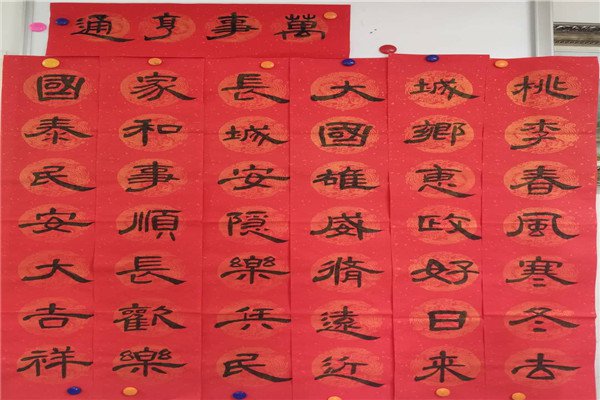 萬事亨通
桃李春風寒冬去
城鄉惠政好日來
大國雄威脩遠近
長城安隱樂兵民
家和事順長歡樂
國泰民安大吉祥